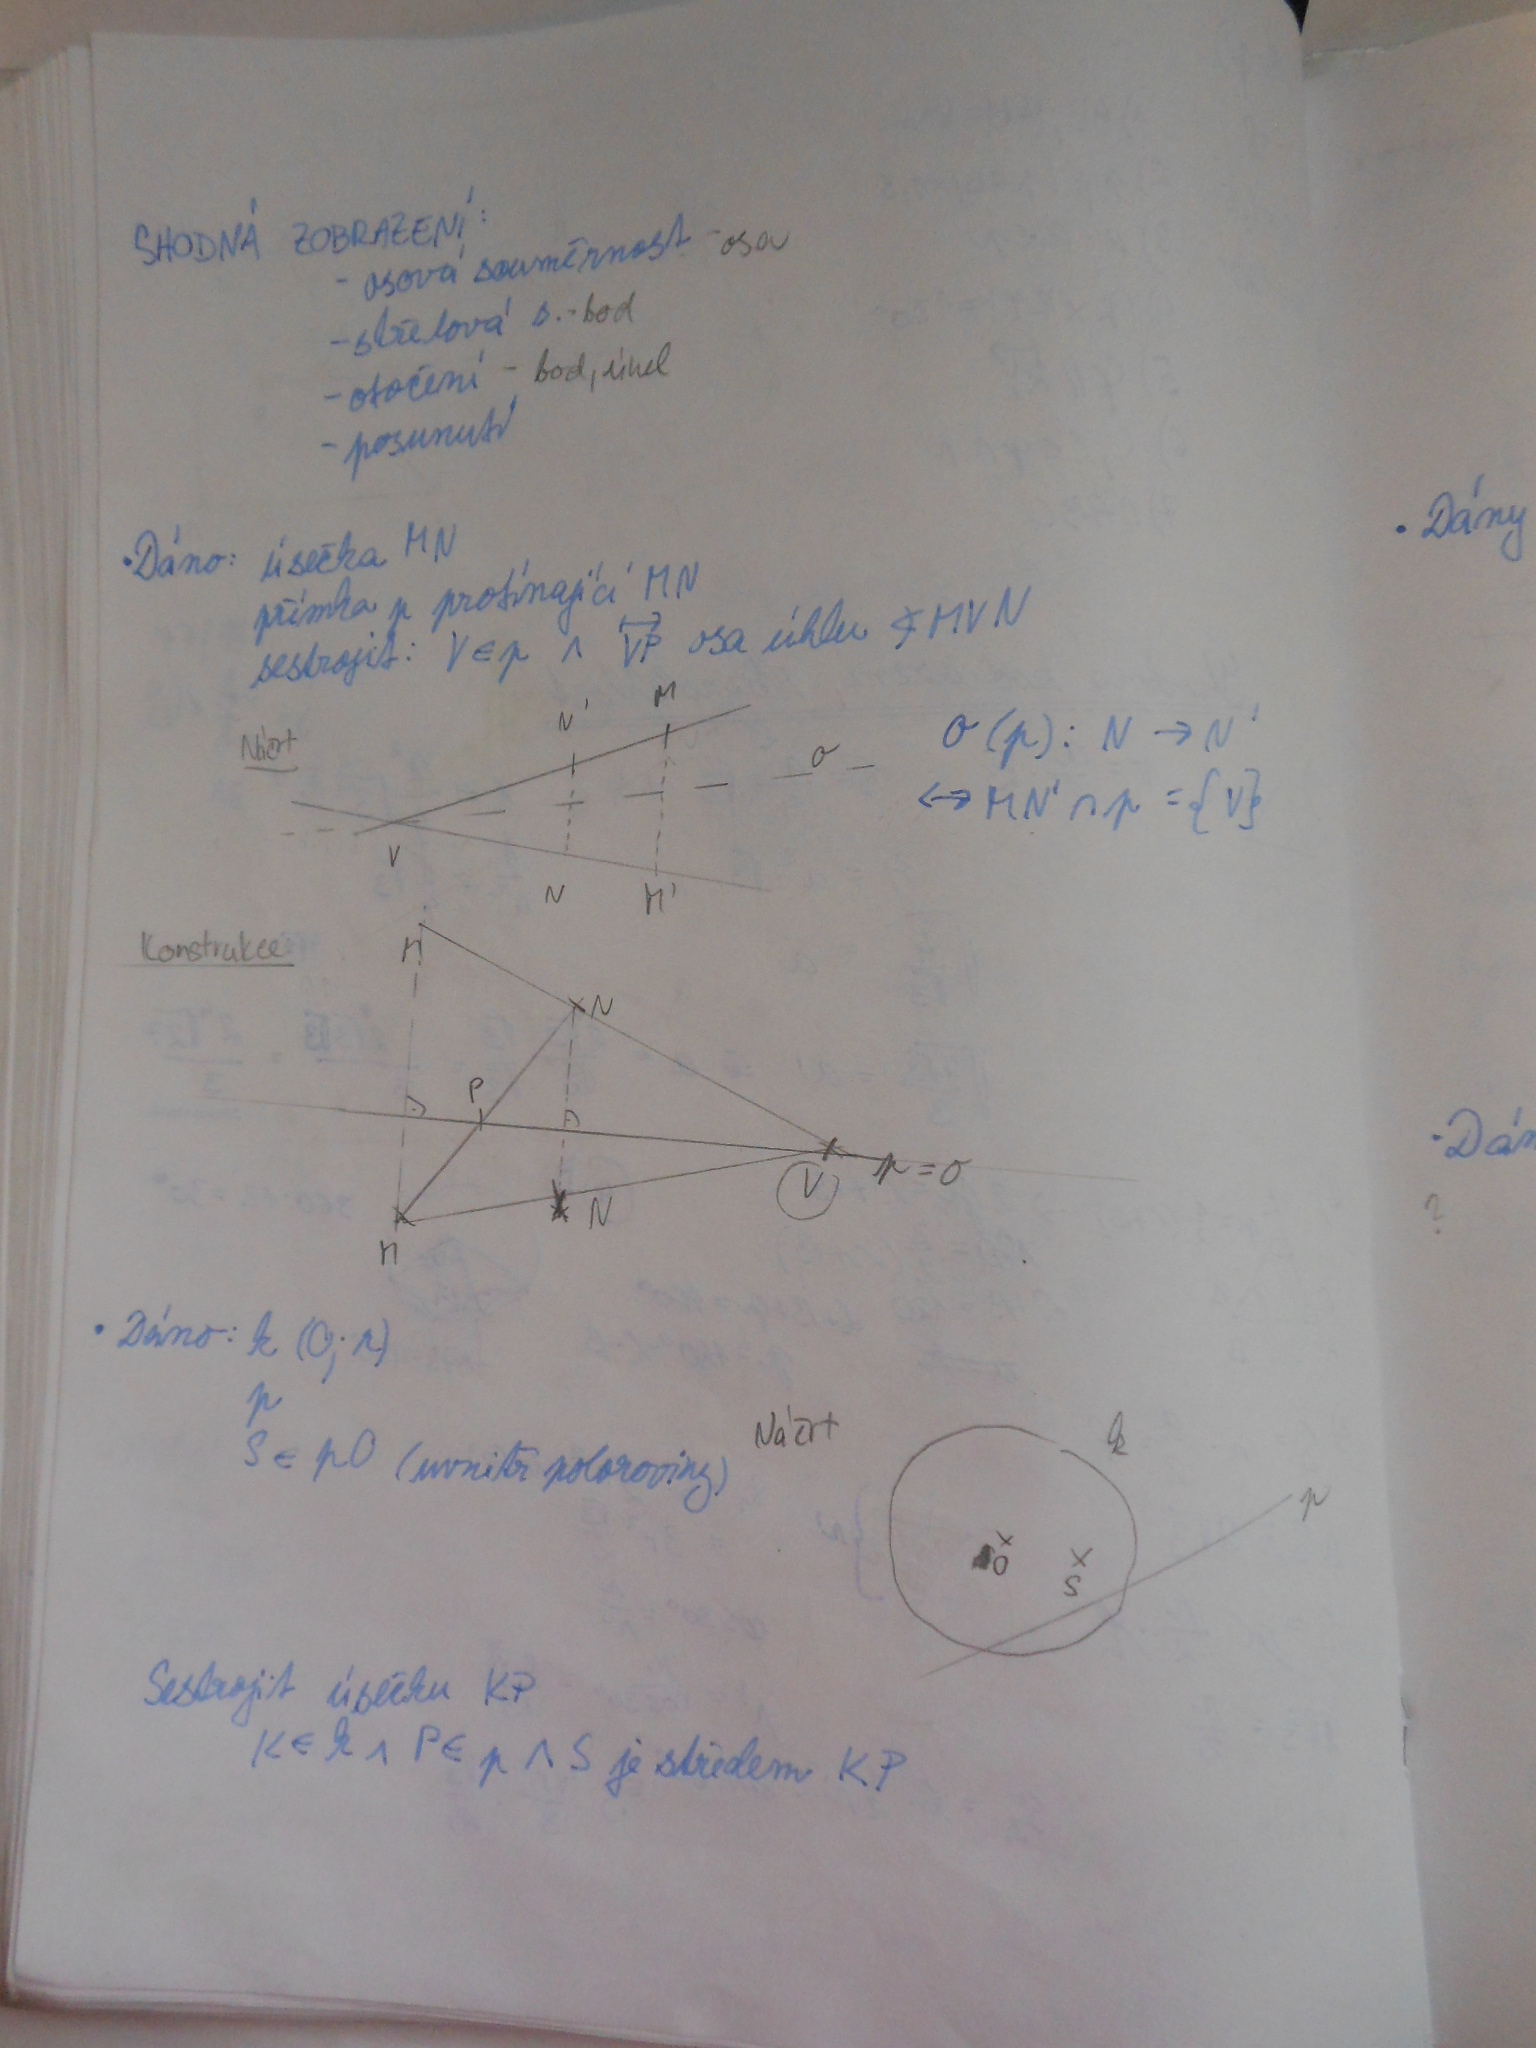 SHODNÁ ZOBRAZENÍ:
- osová souměrnost - osa
- středová s. - bod
- otočení - bod, úhel
- posunutí
• Dáno: úsečka MN
přímka p protínající MN
sestrojit: V ∈ p ∧ ↔VP osa úhlu ∢MVN
Náčrt
N' M
σ
V
N M'
σ(p): N → N'
↔MN' ∩ p = {V}
Konstrukce
M'
N
P
V
p = σ
N'
M
• Dáno: k (O; r)
p
S ∈ pO (uvnitř poloroviny)
Náčrt
k
p
O
S
Sestrojit úsečku KP
K ∈ k ∧ P ∈ p ∧ S je středem KP
• Dány
?